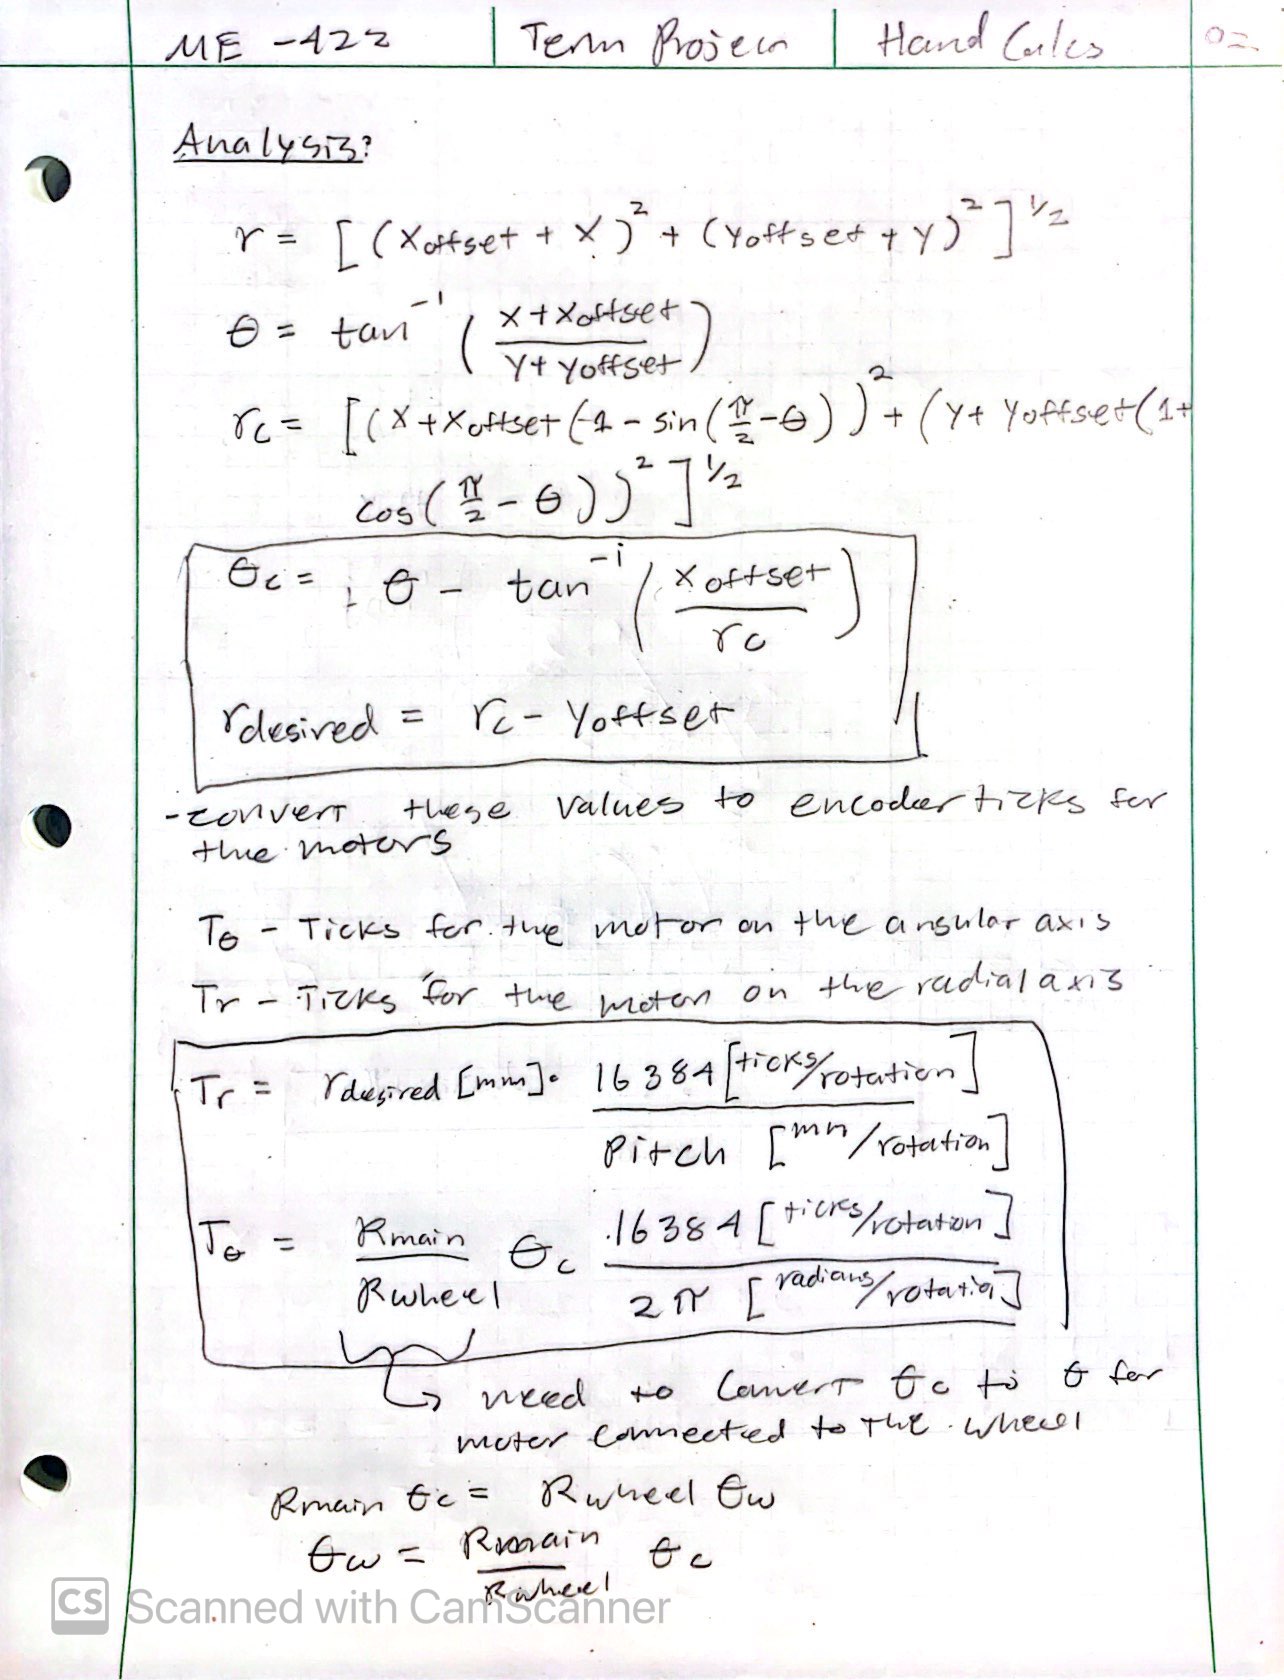 ME -422 | Term Project | Hand Calcs
Analysis:
r = [(Xoffset + X)² + (Yoffset + Y)²]^1/2
θ = tan⁻¹ ( (X + Xoffset) / (Y + Yoffset) )
rc = [(X + Xoffset (-1 - sin(π/2 - θ))² + (Y + Yoffset(1+
cos(π/2 - θ))²]^1/2
θc = θ - tan⁻¹ ( Xoffset / rc )
rdesired = rc - Yoffset
-convert these values to encoder ticks for
the motors
Tθ - Ticks for the motor on the angular axis
Tr - Ticks for the motor on the radial axis
Tr = rdesired [mm] · 16384 [ticks/rotation] / Pitch [mm/rotation]
Tθ = Rmain / Rwheel θc · 16384 [ticks/rotation] / 2π [radians/rotatio]
↳ need to convert θc to θ for
motor connected to the wheel
Rmain θc = Rwheel θw
θw = Rmain / Rwheel θc
CS Scanned with CamScanner